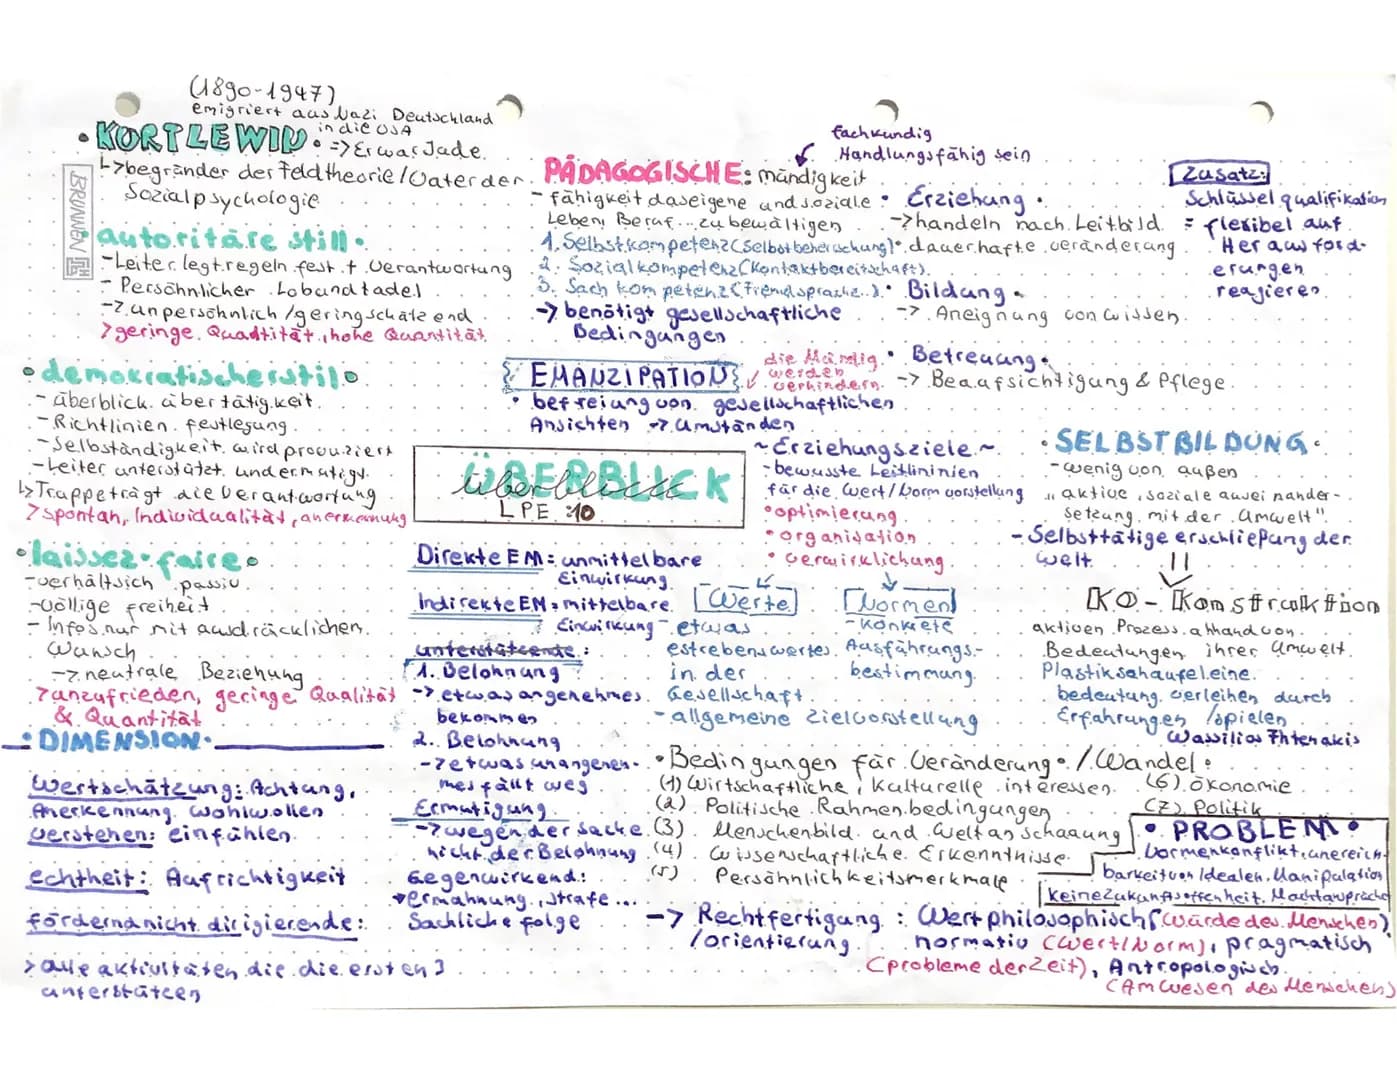 (1890-1947)
emigriert aus Nazi Deutschland
in die USA
• KORTLEWIN • => Er war Jude.
↳ begründer der Feldtheorie/Vater der
Sozialpsychologie
BRUNNEN
• autoritäre still •
- Leiter legt regeln fest + Verantwortung
- Persöhnlicher Lob und tadel
-> unpersöhnlich/geringschätzend
> geringe Quadtität, hohe Quantität
• demokratischerstil •
- überblick über tätigkeit
- Richtlinien festlegung
- Selbständigkeit wird prouziert
- Leiter unterstützt und ermutigt
↳ Truppe trägt die Verantwortung
> spontan, Individualität, anerkennung
• laissez-faire •
- verhält sich passiv
- völlige freiheit
- Infos nur mit ausdrücklichen
Wunsch
-> neutrale Beziehung
> unzufrieden, geringe Qualität
& Quantität
• DIMENSION •
Wertschätzung: Achtung,
Anerkennung Wohlwollen
verstehen: einfühlen
echtheit: Aufrichtigkeit
fördernd nicht dirigierende:
> alle aktivitäten die die ersten 3
unterstützen
fachkundig
Handlungsfähig sein
PÄDAGOGISCHE: mündigkeit
- fähigkeit das eigene und soziale
Leben, Beruf... zu bewältigen
1. Selbstkompetenz (Selbstbeherrschung)
2. Sozialkompetenz (Kontaktbereitschaft)
3. Sachkompetenz (Fremdsprache..)
-> benötigt gesellschaftliche
Bedingungen
EMANZIPATION
die Mündig.
werden
verhindern
• befreiung von gesellschaftlichen
Ansichten -> Umständen
ÜBERBLICK
überblick
LPE: 10
Direkte EM: unmittelbare
Einwirkung
Indirekte EM: mittelbare
Einwirkung
unterstützende:
1. Belohnung
-> etwas angenehmes
bekommen
2. Belohnung
-> etwas unangenen-
mes fällt weg
Ermutigung
-> wegen der Sache
nicht der Belohnung
Gegenwirkend:
Ermahnung, Strafe...
Sachliche folge
• Erziehung •
-> handeln nach Leitbild
• dauerhafte veränderung
• Bildung •
-> Aneignung von wissen
• Betreuung •
-> Beaufsichtigung & Pflege
Zusatz:
Schlüsselqualifikation
= flexibel auf
Herausford-
erungen
reagieren
~ Erziehungsziele ~
- bewusste Leitlininien
für die Wert/Norm vorstellung
• optimierung
• organisation
• verwirklichung
Werte
- etwas
estrebenswertes
in der
Gesellschaft
- allgemeine Zielvorstellung
Normen
- Konkrete
Ausführungs-
bestimmung
• SELBSTBILDUNG •
- wenig von außen
" aktive, soziale auseinander-
setzung mit der Umwelt"
- Selbsttätige erschließung der
Welt
KO-Konstruktion
aktiven Prozess anhand von
Bedeutungen ihrer Umwelt.
Plastikschaufel eine
bedeutung verleihen durch
Erfahrungen/spielen
Wassilios Fhtenakis
• Bedingungen für Veränderung • / Wandel:
(1) Wirtschaftliche, Kulturelle interessen
(2) Politische Rahmenbedingungen
(3) Menschenbild und Weltanschauung
(4) Wissenschaftliche Erkenntnisse
(5) Persöhnlichkeitsmerkmale
(6) Ökonomie
(7) Politik
• PROBLEM •
Normenkonflikt, unereich-
barkeit von Idealen, Manipulation
keine Zukunftsoffenheit, Machtansprüche
-> Rechtfertigung : Wertphilosophisch (Würde des Menschen),
/orientierung normativ (Wert/Norm), pragmatisch
(probleme der Zeit), Antropologisch
(Am Wesen des Menschen)